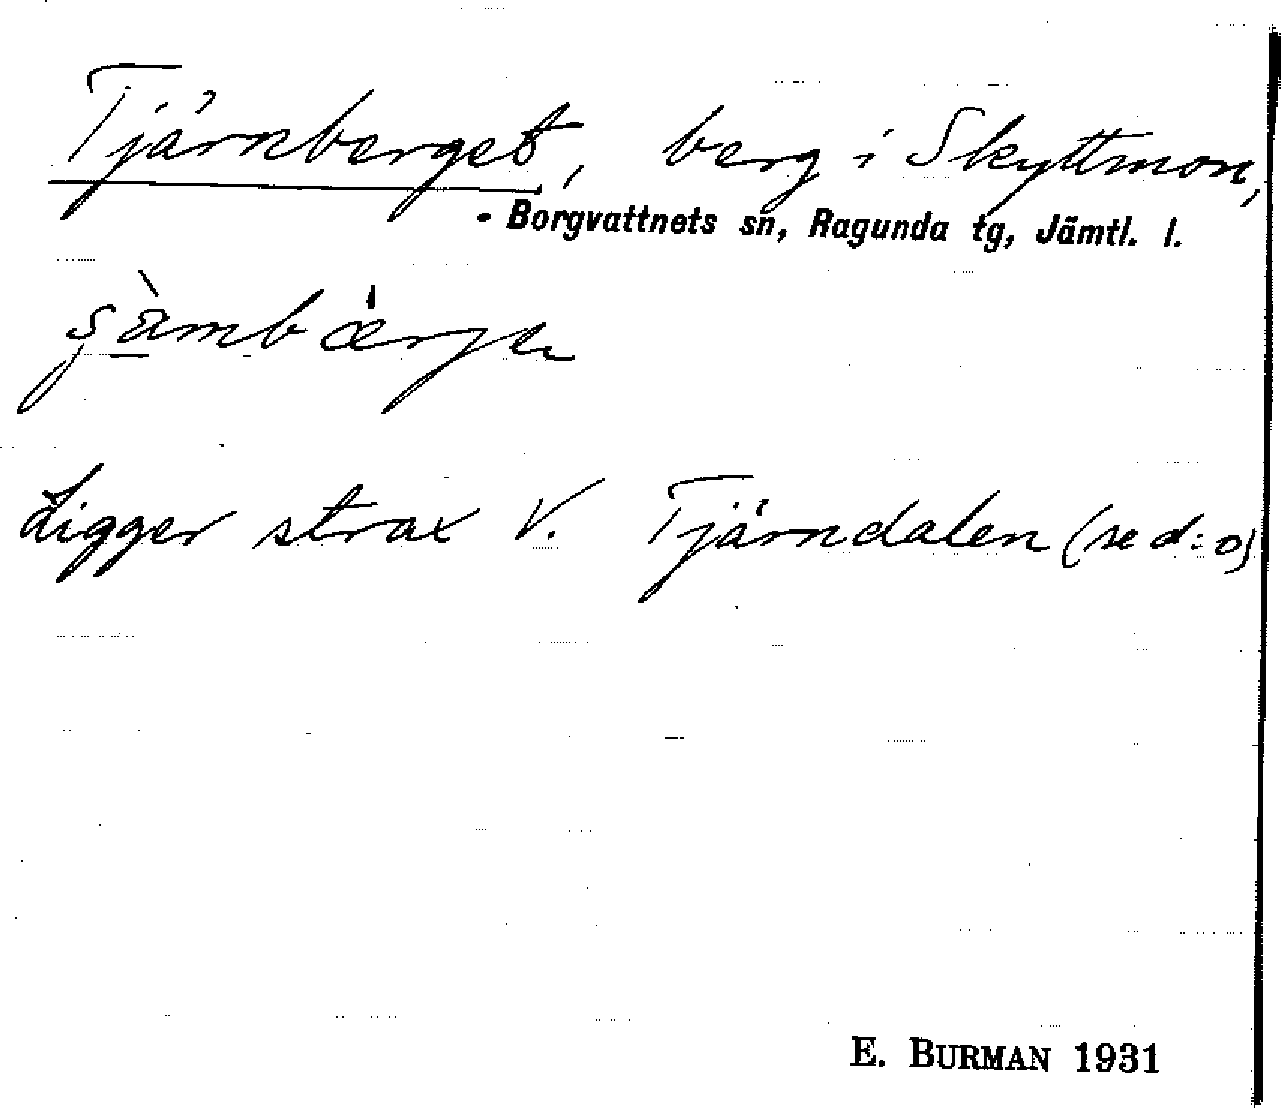 Tjärnberget, berg i Skyttmon,
- Borgvattnets sn, Ragunda tg, Jämtl. l.
Ligger strax V. Tjärndalen (se d:o)
E. BURMAN 1931